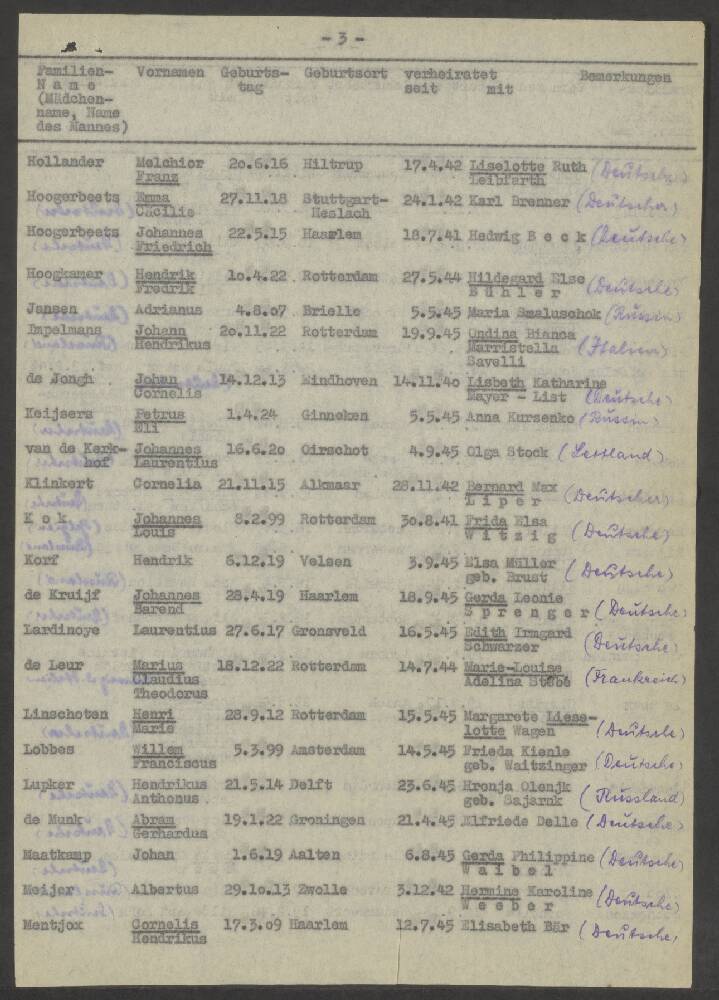 - 3 -
Familien- Vornamen Geburts- Geburtsort verheiratet Bemerkungen
N a m e tag seit mit
(Mädchen-
name, Name
des Mannes)
Hollander Melchior 20.6.16 Hiltrup 17.4.42 Liselotte Ruth (Deutsche)
Franz Leibfarth
Hoogerbeets Emma 27.11.18 Stuttgart- 24.1.42 Karl Brenner (Deutscher)
Cäcilie Heslach
Hoogerbeets Johannes 22.5.15 Haarlem 18.7.41 Hedwig B e c k (Deutsche)
Friedrich
Hoogkamer Hendrik 1o.4.22 Rotterdam 27.5.44 Hildegard Else (Deutsche)
Fredrik B ü h l e r
Jansen Adrianus 4.8.o7 Brielle 5.5.45 Maria Smaluschok (Russin)
Impelmans Johann 2o.11.22 Rotterdam 19.9.45 Ondina Bianca
Hendrikus Marristella (Italien)
Savelli
de Jongh Johan 14.12.13 Eindhoven 14.11.4o Lisbeth Katharine
Cornelis Mayer - List (Deutsche)
Keijsers Petrus 1.4.24 Ginneken 5.5.45 Anna Kursenko (Russin)
Eli
van de Kerk- Johannes 16.6.2o Oirschot 4.9.45 Olga Stock (Lettland)
hof Laurentius
Klinkert Cornelia 21.11.15 Alkmaar 28.11.42 Bernard Max (Deutscher)
L i p e r
K o k Johannes 8.2.99 Rotterdam 3o.8.41 Frida Elsa
Louis W i t z i g (Deutsche)
Korf Hendrik 6.12.19 Velsen 3.9.45 Elsa Müller
geb. Brust (Deutsche)
de Kruijf Johannes 28.4.19 Haarlem 18.9.45 Gerda Leonie
Barend S p r e n g e r (Deutsche)
Lardinoye Laurentius 27.6.17 Gronsveld 16.5.45 Edith Irmgard
Schwarzer (Deutsche)
de Leur Marius 18.12.22 Rotterdam 14.7.44 Marie-Louise
Claudius Adelina Stöbe (Frankreich)
Theodorus
Linschoten Henri 28.9.12 Rotterdam 15.5.45 Margarete Liese-
Marie lotte Wagen (Deutsche)
Lobbes Willem 5.3.99 Amsterdam 14.5.45 Frieda Kienle
Franciscus geb. Waitzinger (Deutsche)
Lupker Hendrikus 21.5.14 Delft 23.6.45 Hronja Olenjk
Anthonus geb. Sajarnk (Russland)
de Munk Abram 19.1.22 Groningen 21.4.45 Elfriede Delle (Deutsche)
Gerhardus
Maatkamp Johan 1.6.19 Aalten 6.8.45 Gerda Philippine (Deutsche)
W a i b e l
Meijer Albertus 29.1o.13 Zwolle 3.12.42 Hermine Karoline
W e e b e r (Deutsche)
Mentjox Cornelis 17.3.o9 Haarlem 12.7.45 Elisabeth Bär (Deutsche)
Hendrikus